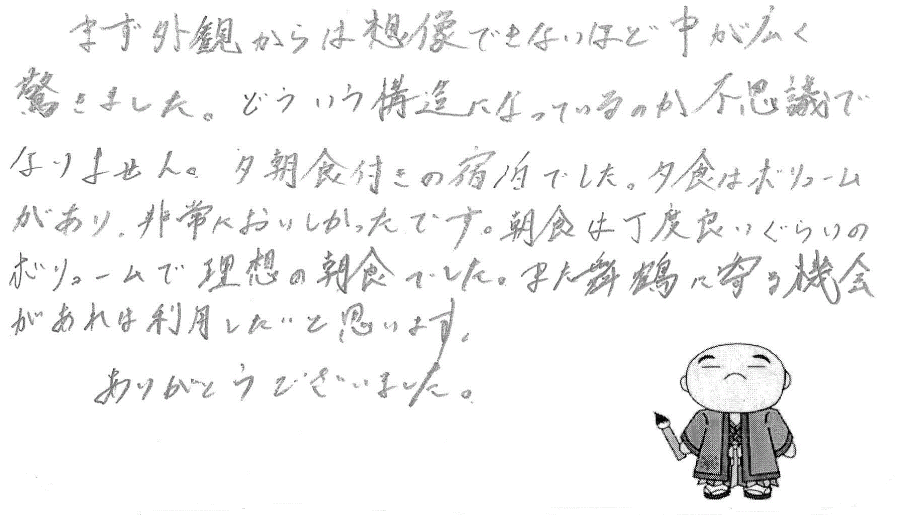 まず外観からは想像できないほど中が広く
驚きました。どういう構造になっているのか不思議で
なりません。夕朝食付きの宿泊でした。夕食はボリューム
があり、非常においしかったです。朝食は丁度良いぐらいの
ボリュームで理想の朝食でした。また舞鶴に寄る機会
があれば利用したいと思います。
ありがとうございました。